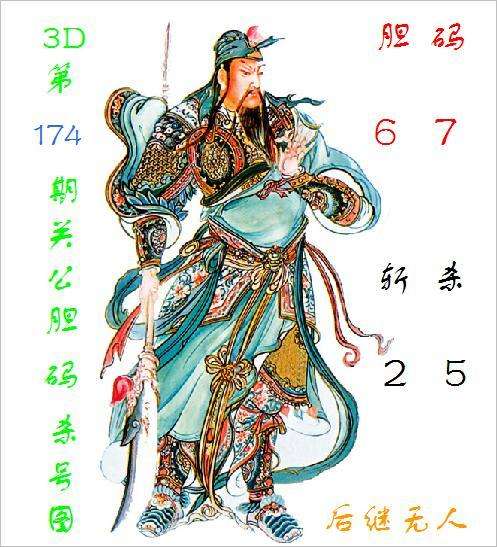 3D
第
174
期
关
公
胆
码
杀
号
图
胆 码
6 7
斩 杀
2 5
后继无人